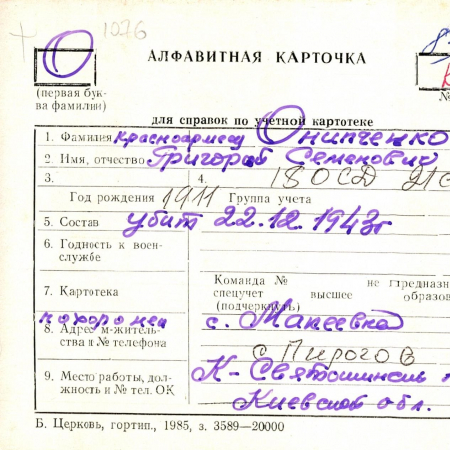 О 1076
АЛФАВИТНАЯ КАРТОЧКА
(первая бук-
ва фамилии)
№
для справок по учетной картотеке
1. Фамилия Красноармеец Онипченко
2. Имя, отчество Григорий Семенович
3. 4. 180 СД 21
Год рождения 1911 Группа учета
5. Состав убит 22.12.1943г
6. Годность к воен-
службе
Команда № не предназ
7. Картотека спецучет высшее образов
(подчеркнуть)
похоронен с. Макеевка
8. Адрес м-житель-
ства и № телефона с Пирогов
9. Место работы, дол- К-Святошинск
жность и № тел. ОК Киевской обл.
Б. Церковь, гортип., 1985, з. 3589—20000